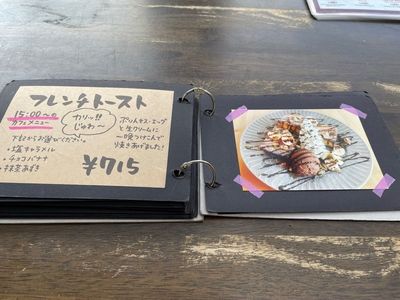 フレンチトースト
15:00〜の
カフェメニュー
カリッ!!
じゅわ〜
下記からお選びください。
・塩キャラメル
・チョコバナナ
・抹茶あずき
と生クリームに
一晩つけこんで
焼きあげました!
¥715